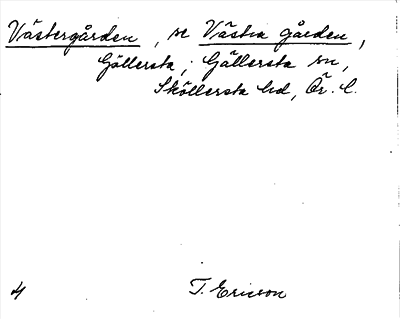 Västergården, se Västra gården,
Gällersta, Gällersta sn,
Sköllersta hd, Ör. l.
4 T. Ericson